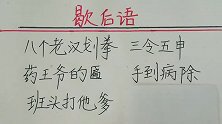 歇后语
八个老汉划拳 三令五申
药王爷的匾 手到病除
班头打他爹